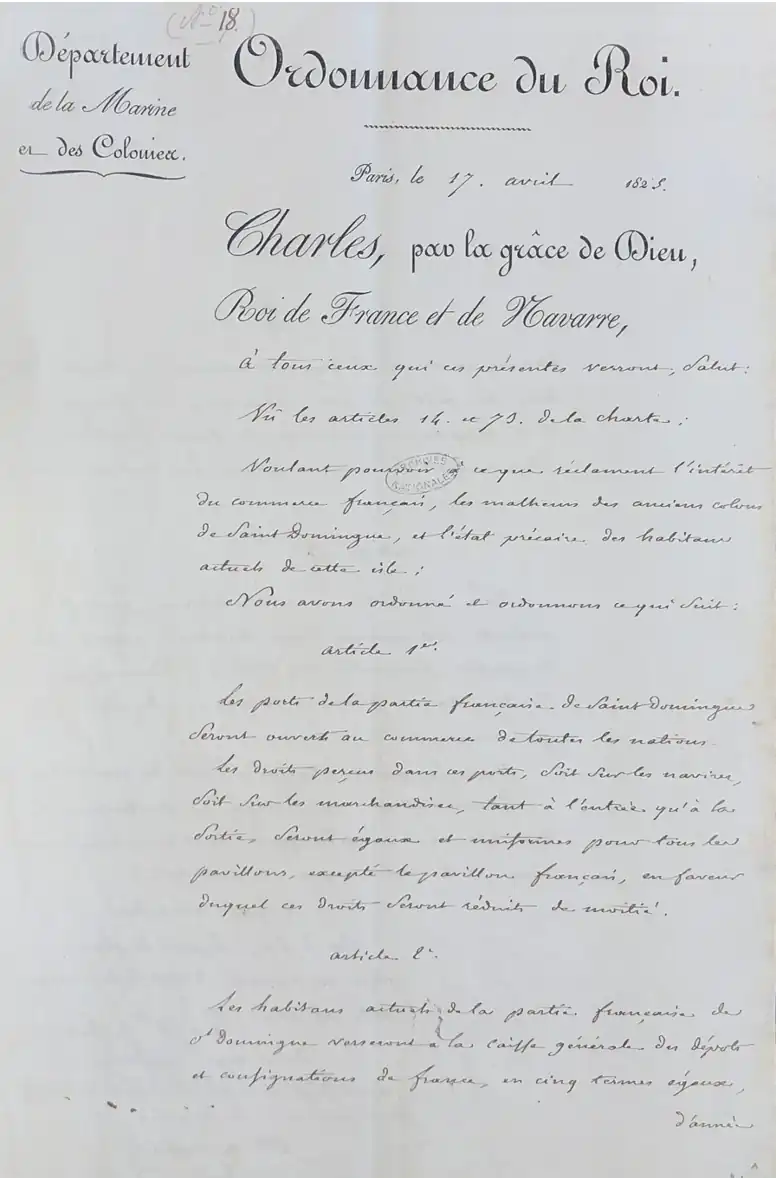 (N.° 18.)
Département
de la Marine
et des Colonies.
Ordonnance du Roi.
Paris, le 17. avril 1825.
Charles, par la grâce de Dieu,
Roi de France et de Navarre,
à tous ceux qui ces présentes verront, Salut:
Vû les articles 14. et 73. de la charte;
ARCHIVES
NATIONALES
Voulant pourvoir à ce que réclament l'intérêt
du commerce français, les malheurs des anciens colons
de Saint Domingue, et l'état précaire des habitans
actuels de cette isle;
Nous avons ordonné et ordonnons ce qui suit:
article 1er.
Les ports de la partie française de Saint Domingue
seront ouverts au commerce de toutes les nations.
Les droits perçus dans ces ports, soit sur les navires,
soit sur les marchandises, tant à l'entrée qu'à la
sortie, seront égaux et uniformes pour tous les
pavillons, excepté le pavillon français, en faveur
duquel ces droits seront réduits de moitié.
article 2e.
Les habitans actuels de la partie française de
St Domingue verseront à la caisse générale des dépôts
et consignations de france, en cinq termes égaux,
d'année